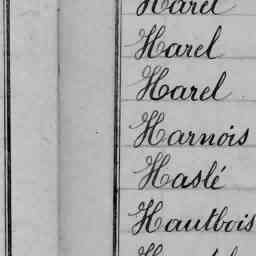 Harel
Harel
Harel
Harnois
Haslé
Hautbois